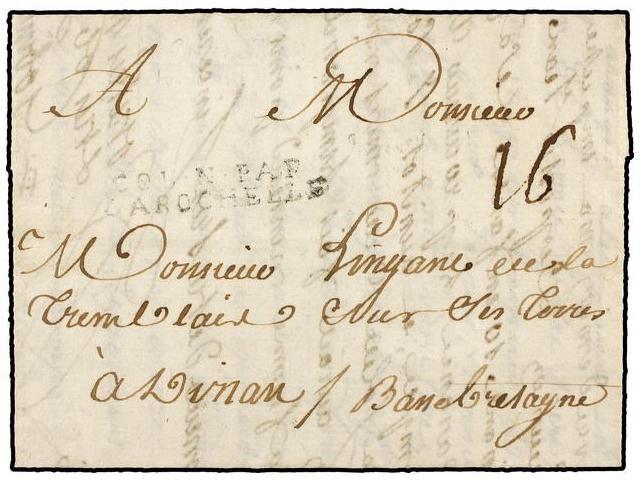 A Monsieur
16
COL. N. PAR
LAROCHELLE
Monsieur Lingane de la
Tremblaix Sur Ses Terres
à Dinan / Basse bretagne